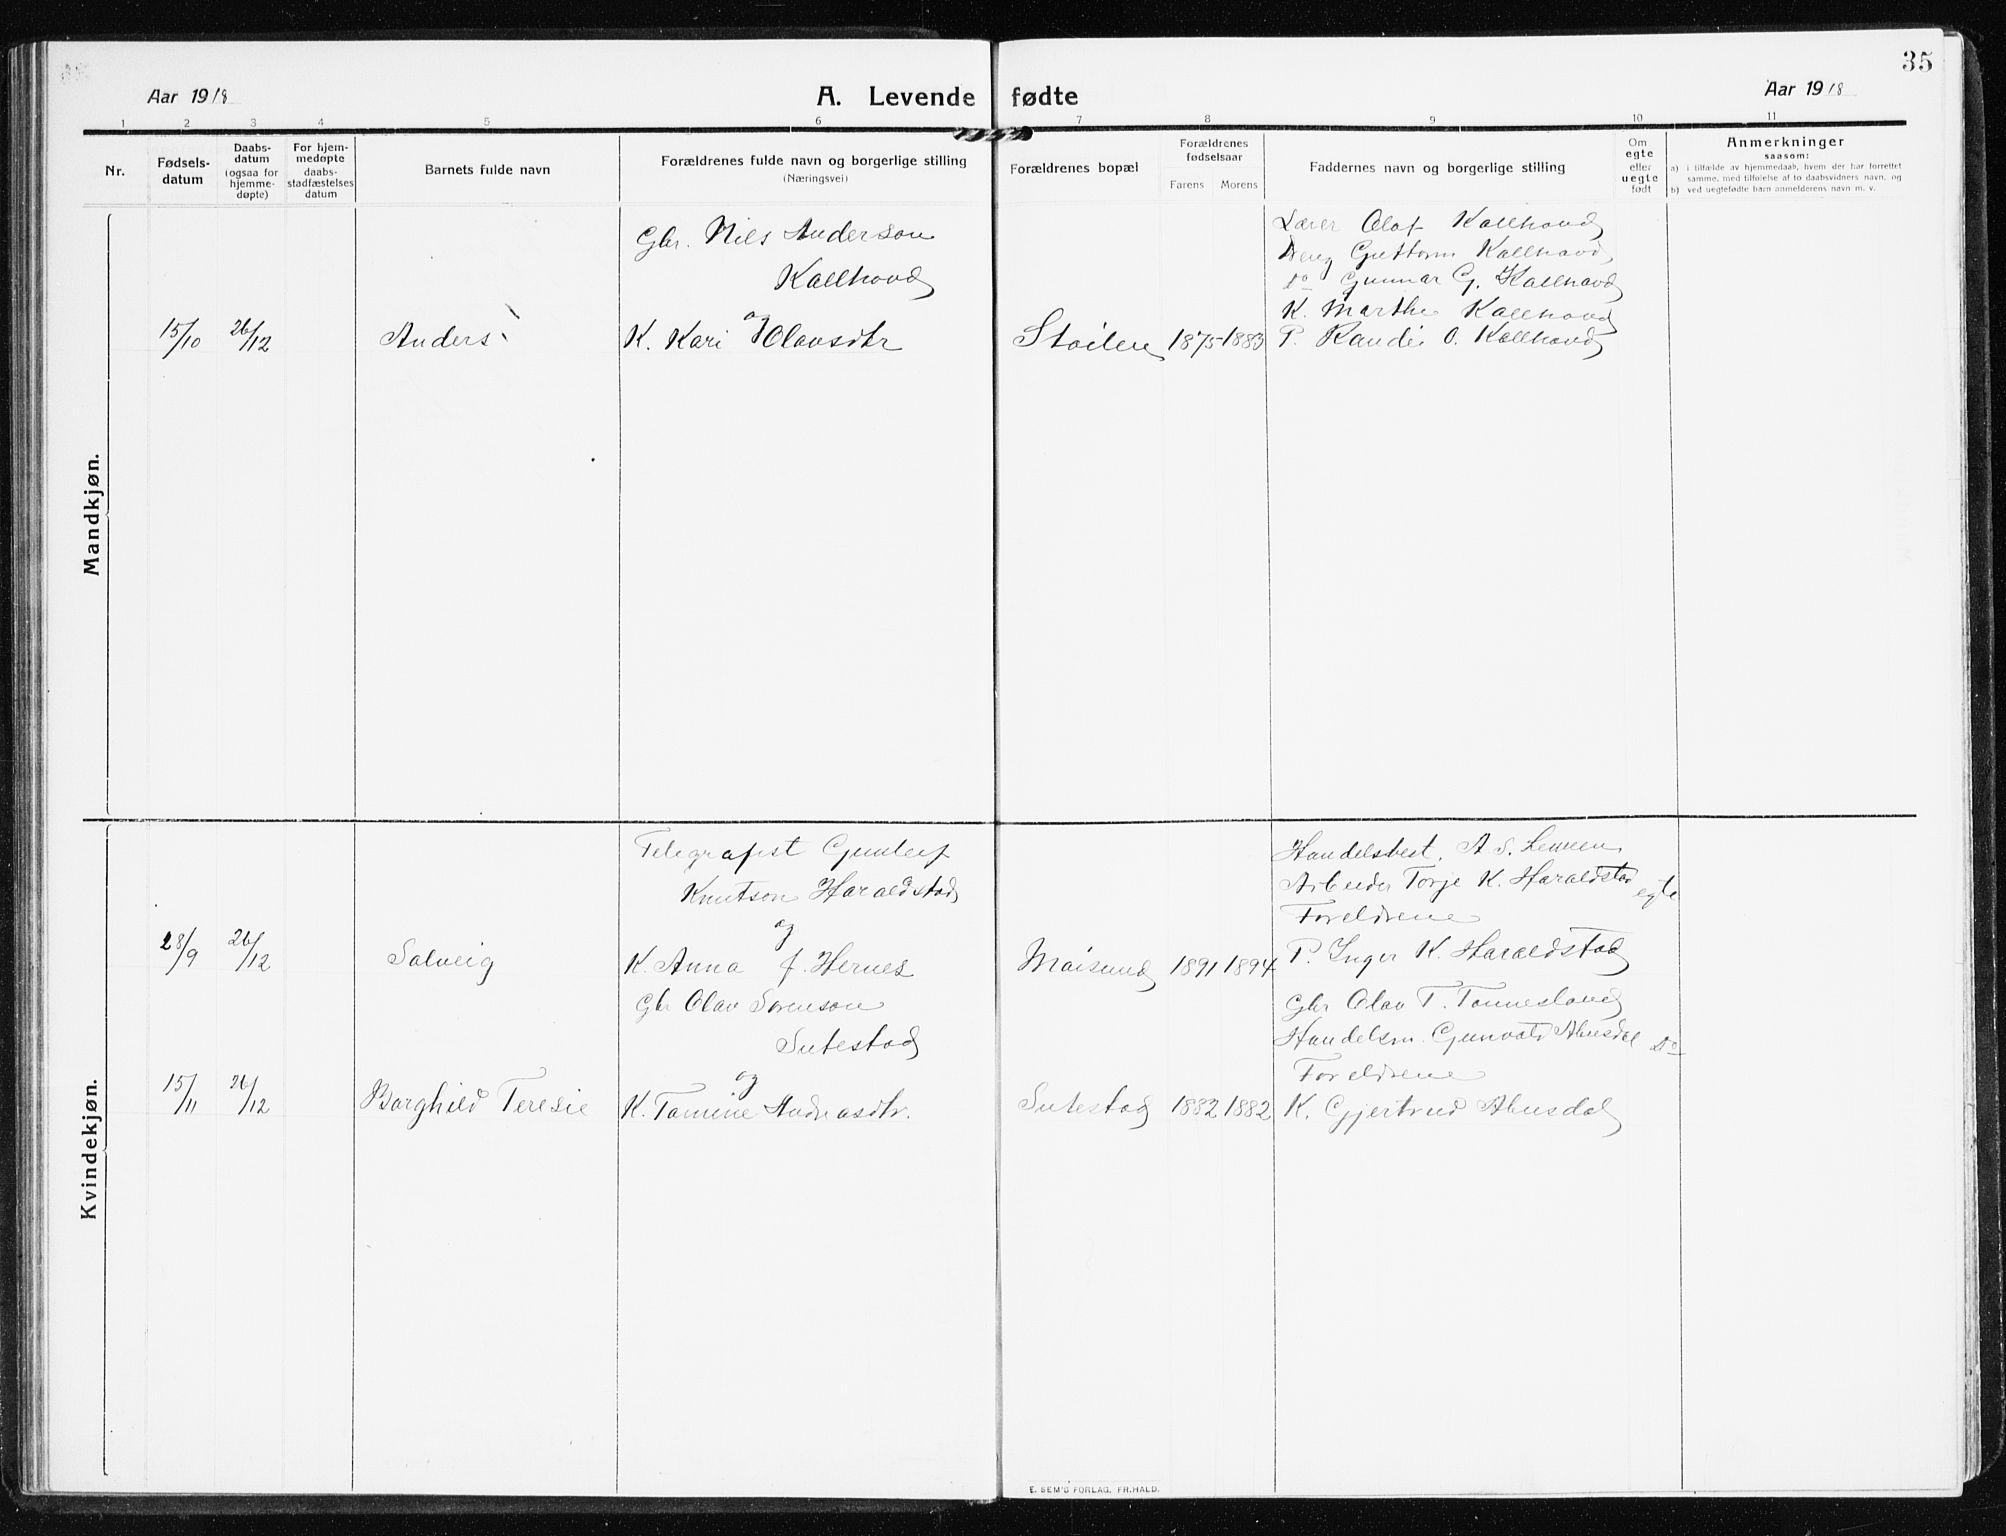 35
Aar 1918
A. Levende fødte
Aar 1918
1 2 3 4 5 6 7 8 9 10 11
Nr.
Fødsels-
datum
Daabs-
datum
(ogsaa for
hjemme-
døpte)
For hjem-
medøpte
daabs-
stadfæstelses
datum
Barnets fulde navn
Forældrenes fulde navn og borgerlige stilling
(Næringsvei)
Forældrenes bopæl
Forældrenes
fødselsaar
Farens Morens
Faddernes navn og borgerlige stilling
Om
egte
eller
uegte
født
Anmerkninger
saasom:
a) i tilfælde av hjemmedaab, hvem der har forrettet
samme, med tilføielse af to daabsvidners navn, og
b) ved uegtefødte barn anmelderens navn m. v.
Mandkjøn.
15/10 26/12
Anders
Gbr. Nils Anderson
Kallhovd
og
K. Kari Olavsdtr
Støilen
1875 1883
Lærer Olaf Kallhovd
Guttorm Kallhovd
Do Gunnar G. Kallhovd
K. Marthe Kallhovd
P. Randei O. Kallhovd
Kvindekjøn.
28/9 26/12
Solveig
Telegrafist Gunleif
Knutson Haraldstad
og
K. Anna J. Hernes
Moisund
1891 1894
Handelsbest. A S.
Arbeider Torje K. Haraldstad
Foreldrene
P. Inger K. Haraldstad
egte
15/11 26/12
Borghild Teresie
Gbr Olav Sørenson
Sutestad
og
K. Tomine Andreasdtr.
Sutestad
1882 1882
Gbr Olav T. Tonnesland
Handelsm. Gunvald Abusdal
Foreldrene
K. Gjertrud Abusdal
Do
E. SEM'S FORLAG, FR.HALD.